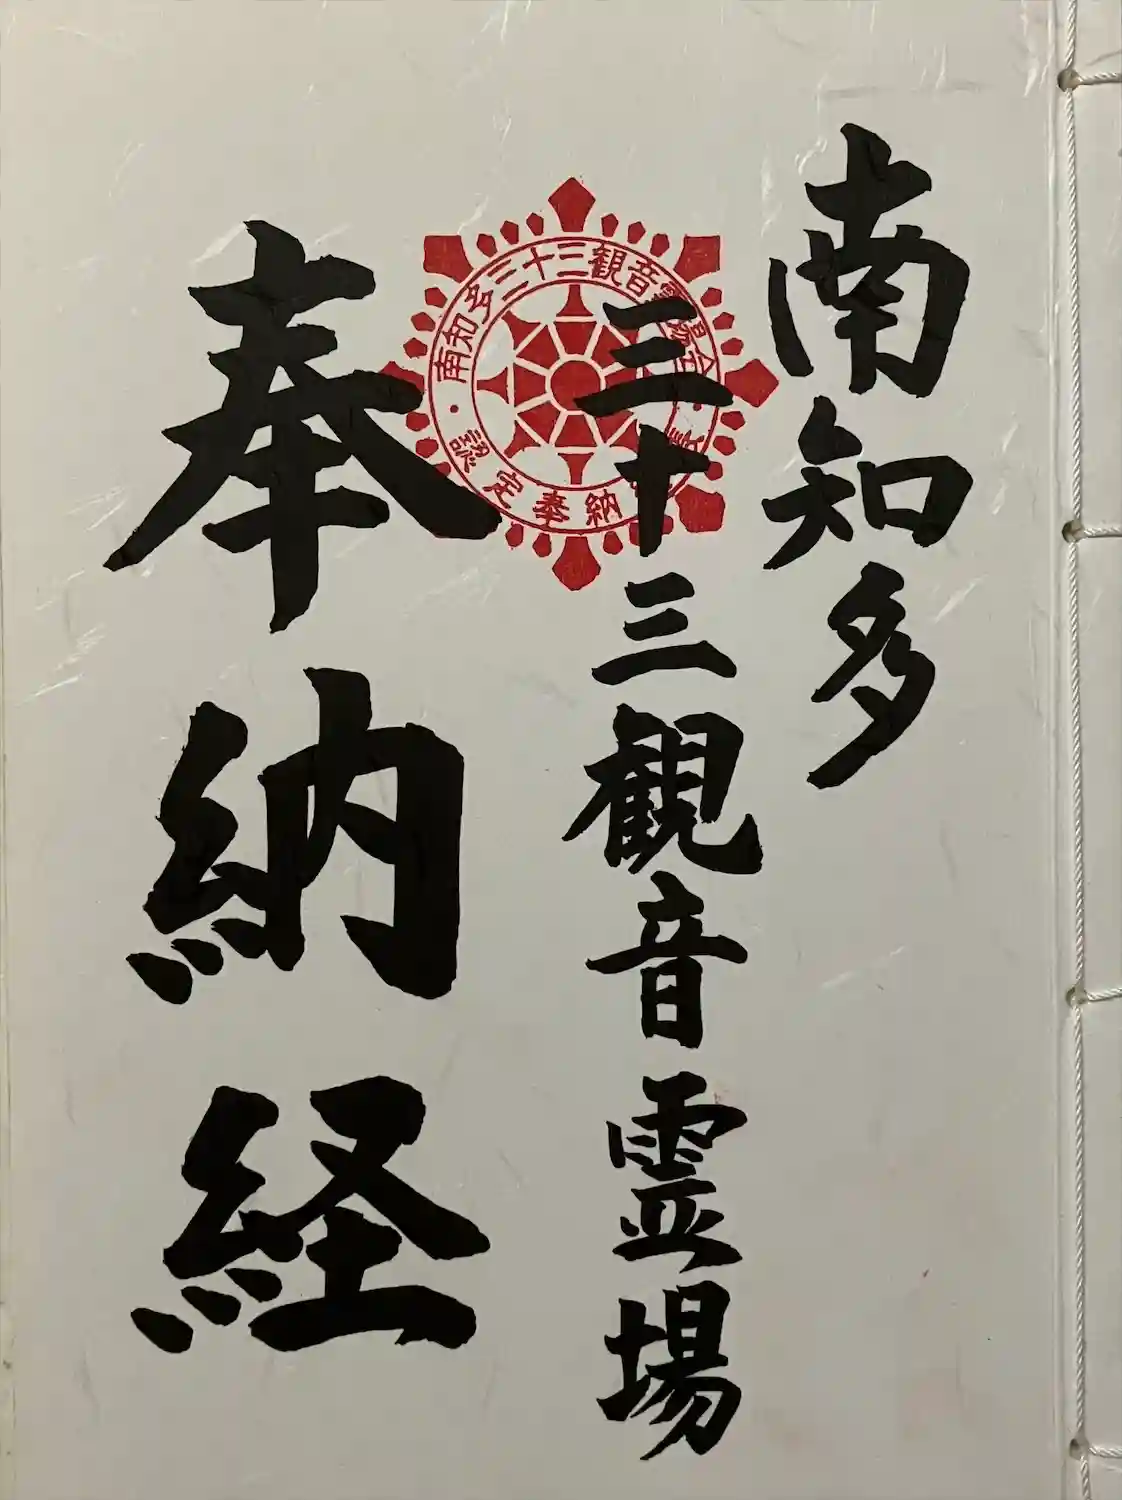 南知多
三十三観音霊場
奉納経
南知多三十三観音霊場会
認定奉納